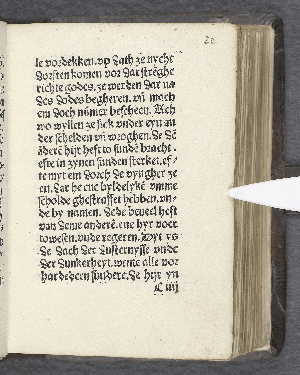 le vordekken. vp dath ze nycht
dorsten komen vor dat strēghe
richte godes. ze werden dar na
des dodes begheren. vñ mach
em doch nůmer bescheen. Ach
wo wyllen ze sick vnder eyn an
der schelden vñ wroghen. de dē
andere hijr heft to sundē bracht.
efte in zynen sunden sterket. ef-
te myt em dorch de vyngher ze
en. dat he ene byldelykē vmme
scholde ghestraffet hebben. vn-
de by namen. dede beueel heft
van deme anderē. ene hyr voer
towesen. vnde regeren. Wyt ys
de dach der dusternysse vnde
der dunkerheyt. wente alle vor
hardeden sundere. de hijr yn
C iiij